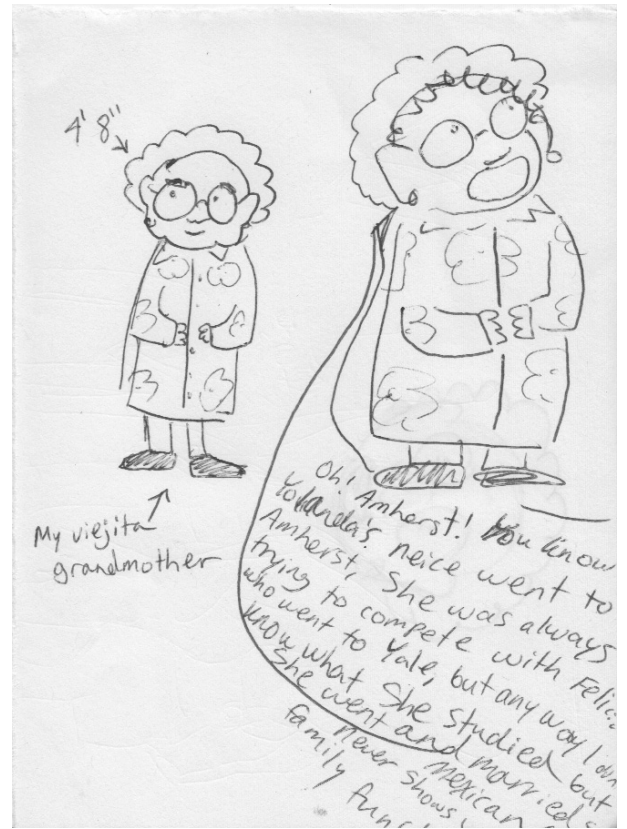 4' 8"
My viejita
grandmother
Oh! Amherst! You know
Yolanda's neice went to
Amherst, She was always
trying to compete with Felici
who went to Yale, but any way I
know what she studied but
She went and married
mexican
never shows
family func